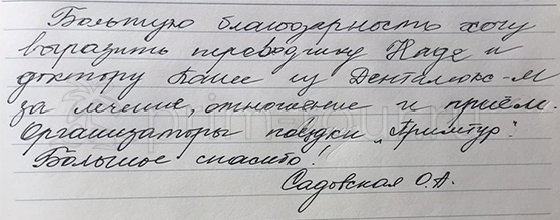 Большую благодарность хочу
выразить переводчику Наде и
доктору Ване из Денталюкс-М
за лечение, отношение и приём.
Организаторы поездки „Примтур".
Большое спасибо!
Садовская О.А.